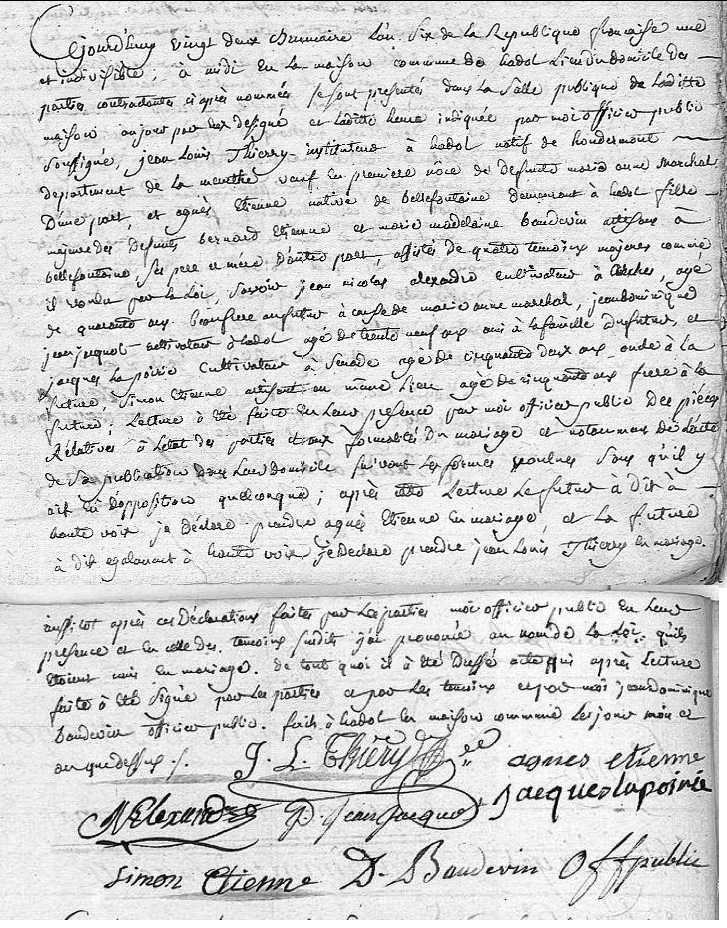 Cejourd'huy vingt deux Brumaire L'an Six de la Republique française une
et indivisible, à midi en la maison commune de hadol Lieu du domicile des
parties contractantes ci après nommés se sont presentés dans la Salle publique de Laditte
maison au jour par eux designé et laditte heure indiquée par moi officier public
Soussigné, jean Louis Thierry instituteur à hadol natif de houdemont
departement de la meurthe veuf en premiere nôce de deffunte marie anne marchal
D'une part, et agnès Etienne native de bellefontaine demeurant à hadol fille
majeure des deffunts bernard Etienne et marie madelaine baudevin artisans à
bellefontaine, Ses pere et mère D'autre part, assistés de quatre temoins majeures comme
il voudu par la Loi, Savoir jean nicolas alexandre cultivateur à arches, agé
de quarante ans beaufrere au futur à cause de marie anne marchal, jeandominique
jean jacquot cultivateur d'hadol agé de trente neuf ans ami à la famille du futur, et
jacques La poirie Cultivateur à agé de cinquante deux ans, oncle à la
future, Simon Etienne artisant au même Lieu agé de cinquante ans frere à la
future; Lecture à été faite en Leur presence par moi officier public Des pièces
Rélatives à L'etat des parties et aux formalités Du mariage et notamment de L'acte
de Sa publication Dans Leur Domicile Suivant Les formes voulues Sans qu'il y
ait eu D'opposition quelconque; après cette Lecture Le futur à Dit à
haute voix je Déclare prendre agnès Etienne en mariage, et La future
à dit egalement à haute voix je Declare prendre jean Louis Thierry en mariage.
aussitot après ces Déclarations faites par Les parties moi officier public En Leur
presence et en celle des temoins Susdits j'ai prononcé au nom de La Loi qu'ils
etoient unis en mariage. de tout quoi il à été Dressé acte qui après Lecture
faite à été Signé par Les parties et par Les temoins et par moi jeandominique
Baudevin officier public. fait à hadol en maison commune Les jour mois et
an que dessus ./.
J. L. Thiéry agnes etienne
N Alexandre D. Jean Jacquot Jacques lapoirie
Simon Etienne D. Baudevin Off public